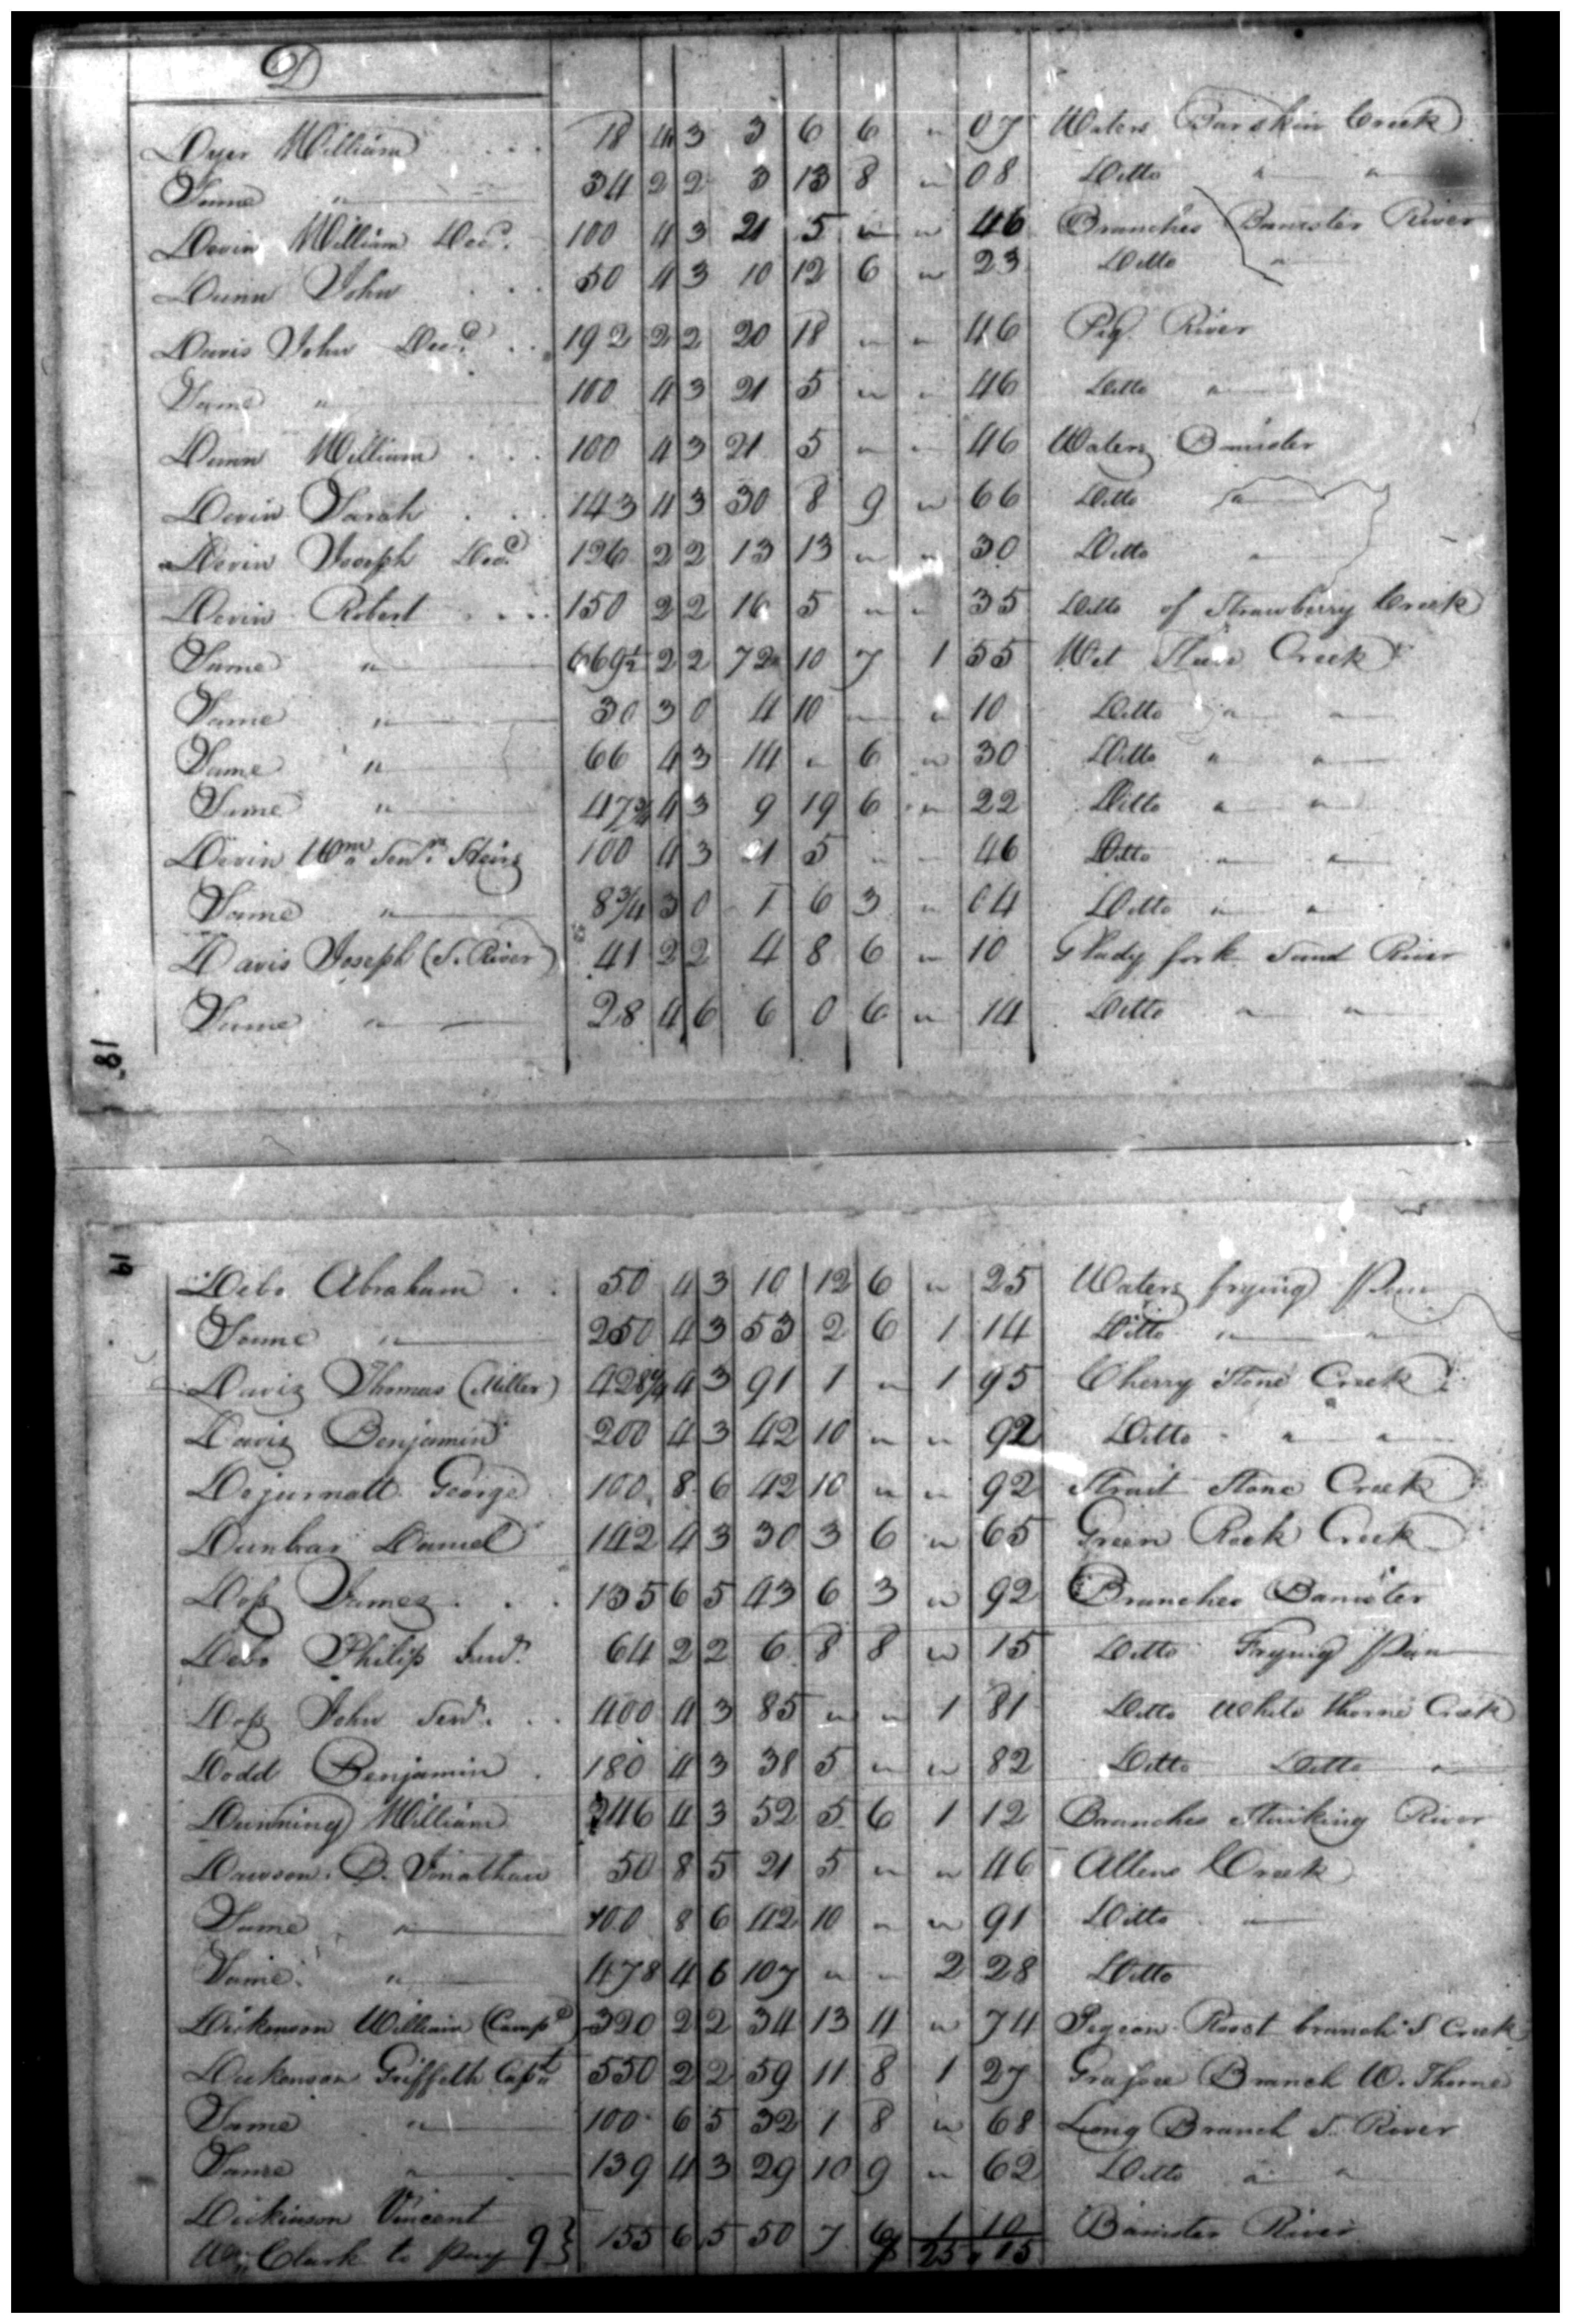 D
Dyer William 18 4 3 3 6 6 " 07 Waters Barskin Creek
Same " 34 2 2 3 13 8 " 08 Ditto " "
Devin William Decd. 100 4 3 21 5 " " 46 Branches Banister River
Dunn John 50 4 3 10 12 6 " 23 Ditto "
Davis John Decd. 192 2 2 20 18 " " 46 Pig River
Same " 100 4 3 21 5 " " 46 Ditto "
Dunn William 100 4 3 21 5 " " 46 Waters Banister
Devin Sarah 143 4 3 30 8 9 " 66 Ditto "
Devin Joseph Decd 126 2 2 13 13 " " 30 Ditto "
Devin Robert 150 2 2 16 5 " " 35 Ditto of Strawberry Creek
Same " 669½ 2 2 72 10 7 1 55 Wet Creek
Same " 30 3 0 4 10 " " 10 Ditto " "
Same " 66 4 3 14 " 6 " 30 Ditto " "
Same " 47 4 3 9 19 6 " 22 Ditto " "
Devin Wm Senr. Heirs 100 4 3 21 5 " " 46 Ditto " "
Same " 8¾ 3 0 1 6 3 " 04 Ditto " "
Davis Joseph (S. River) 41 2 2 4 8 6 " 10 Glady fork Sand River
Same " 28 4 6 6 0 6 " 14 Ditto " "
18
19
Debo Abraham 50 4 3 10 12 6 " 25 Waters frying Pan
Same " 250 4 3 53 2 6 1 14 Ditto " "
Davis Thomas (Miller) 428 4 3 91 1 " 1 95 Cherry Stone Creek
Davis Benjamin 200 4 3 42 10 " " 92 Ditto " "
Dejurnatt George 100 8 6 42 10 " " 92 Strait Stone Creek
Dunbar Daniel 142 4 3 30 3 6 " 65 Green Rock Creek
Doss James 135 6 5 43 6 3 " 92 Branches Banister
Debo Philip Senr. 64 2 2 6 8 8 " 15 Ditto Frying Pan
Doss John Senr. 400 4 3 85 " " 1 81 Ditto White thorne Creek
Dodd Benjamin 180 4 3 38 5 " " 82 Ditto Ditto "
Dunning William 246 4 3 52 5 6 1 12 Branches Stinking River
Dawson D. Jonathan 50 8 5 21 5 " " 46 Allens Creek
Same " 100 8 6 42 10 " " 91 Ditto "
Same " 478 4 6 107 " " 2 28 Ditto
Dickenson William (Campd) 320 2 2 34 13 4 " 74 Pegion Roost branch S Creek
Dickenson Griffeth Capt 550 2 2 59 11 8 1 27 Branch W. Thorne
Same " 100 6 5 32 1 8 " 68 Long Branch S. River
Same " 139 4 3 29 10 9 " 62 Ditto " "
Dickinson Vincent
W. Clark to pay 9} 155 6 5 50 7 6 1 10 Banister River
25 " 15